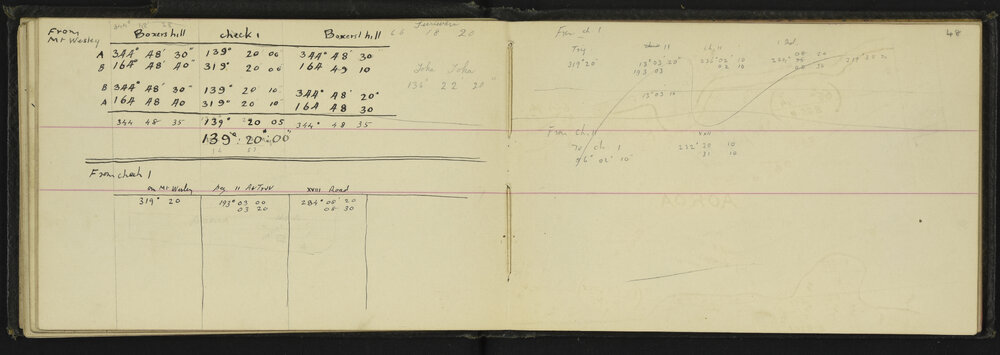 From
Mt Wesley
Boxers hill check 1 Boxers hill
A 344° 48' 30" 139° 20 00 344° 48' 30
B 164° 48' 40" 319° 20 00 164 49 10
B 344° 48' 30" 139° 20 10 344° 48' 20"
A 164 48 40 319° 20 10 164 48 30
344 48 35 139° 20 05 344° 48 35
139° 20' 00"
66 18 20
Toka Toka
136° 22 20
From check 1
on Mt Wesley XVIII Road
319° 20 193° 03 00 284° 08' 20
03 20 08 30
48
From ch 1
319° 20' 13° 03 20"
193 03
13° 03 10
From ch. 11
To ch 1 XVIII
56° 02' 10" 222° 20 10
31 10